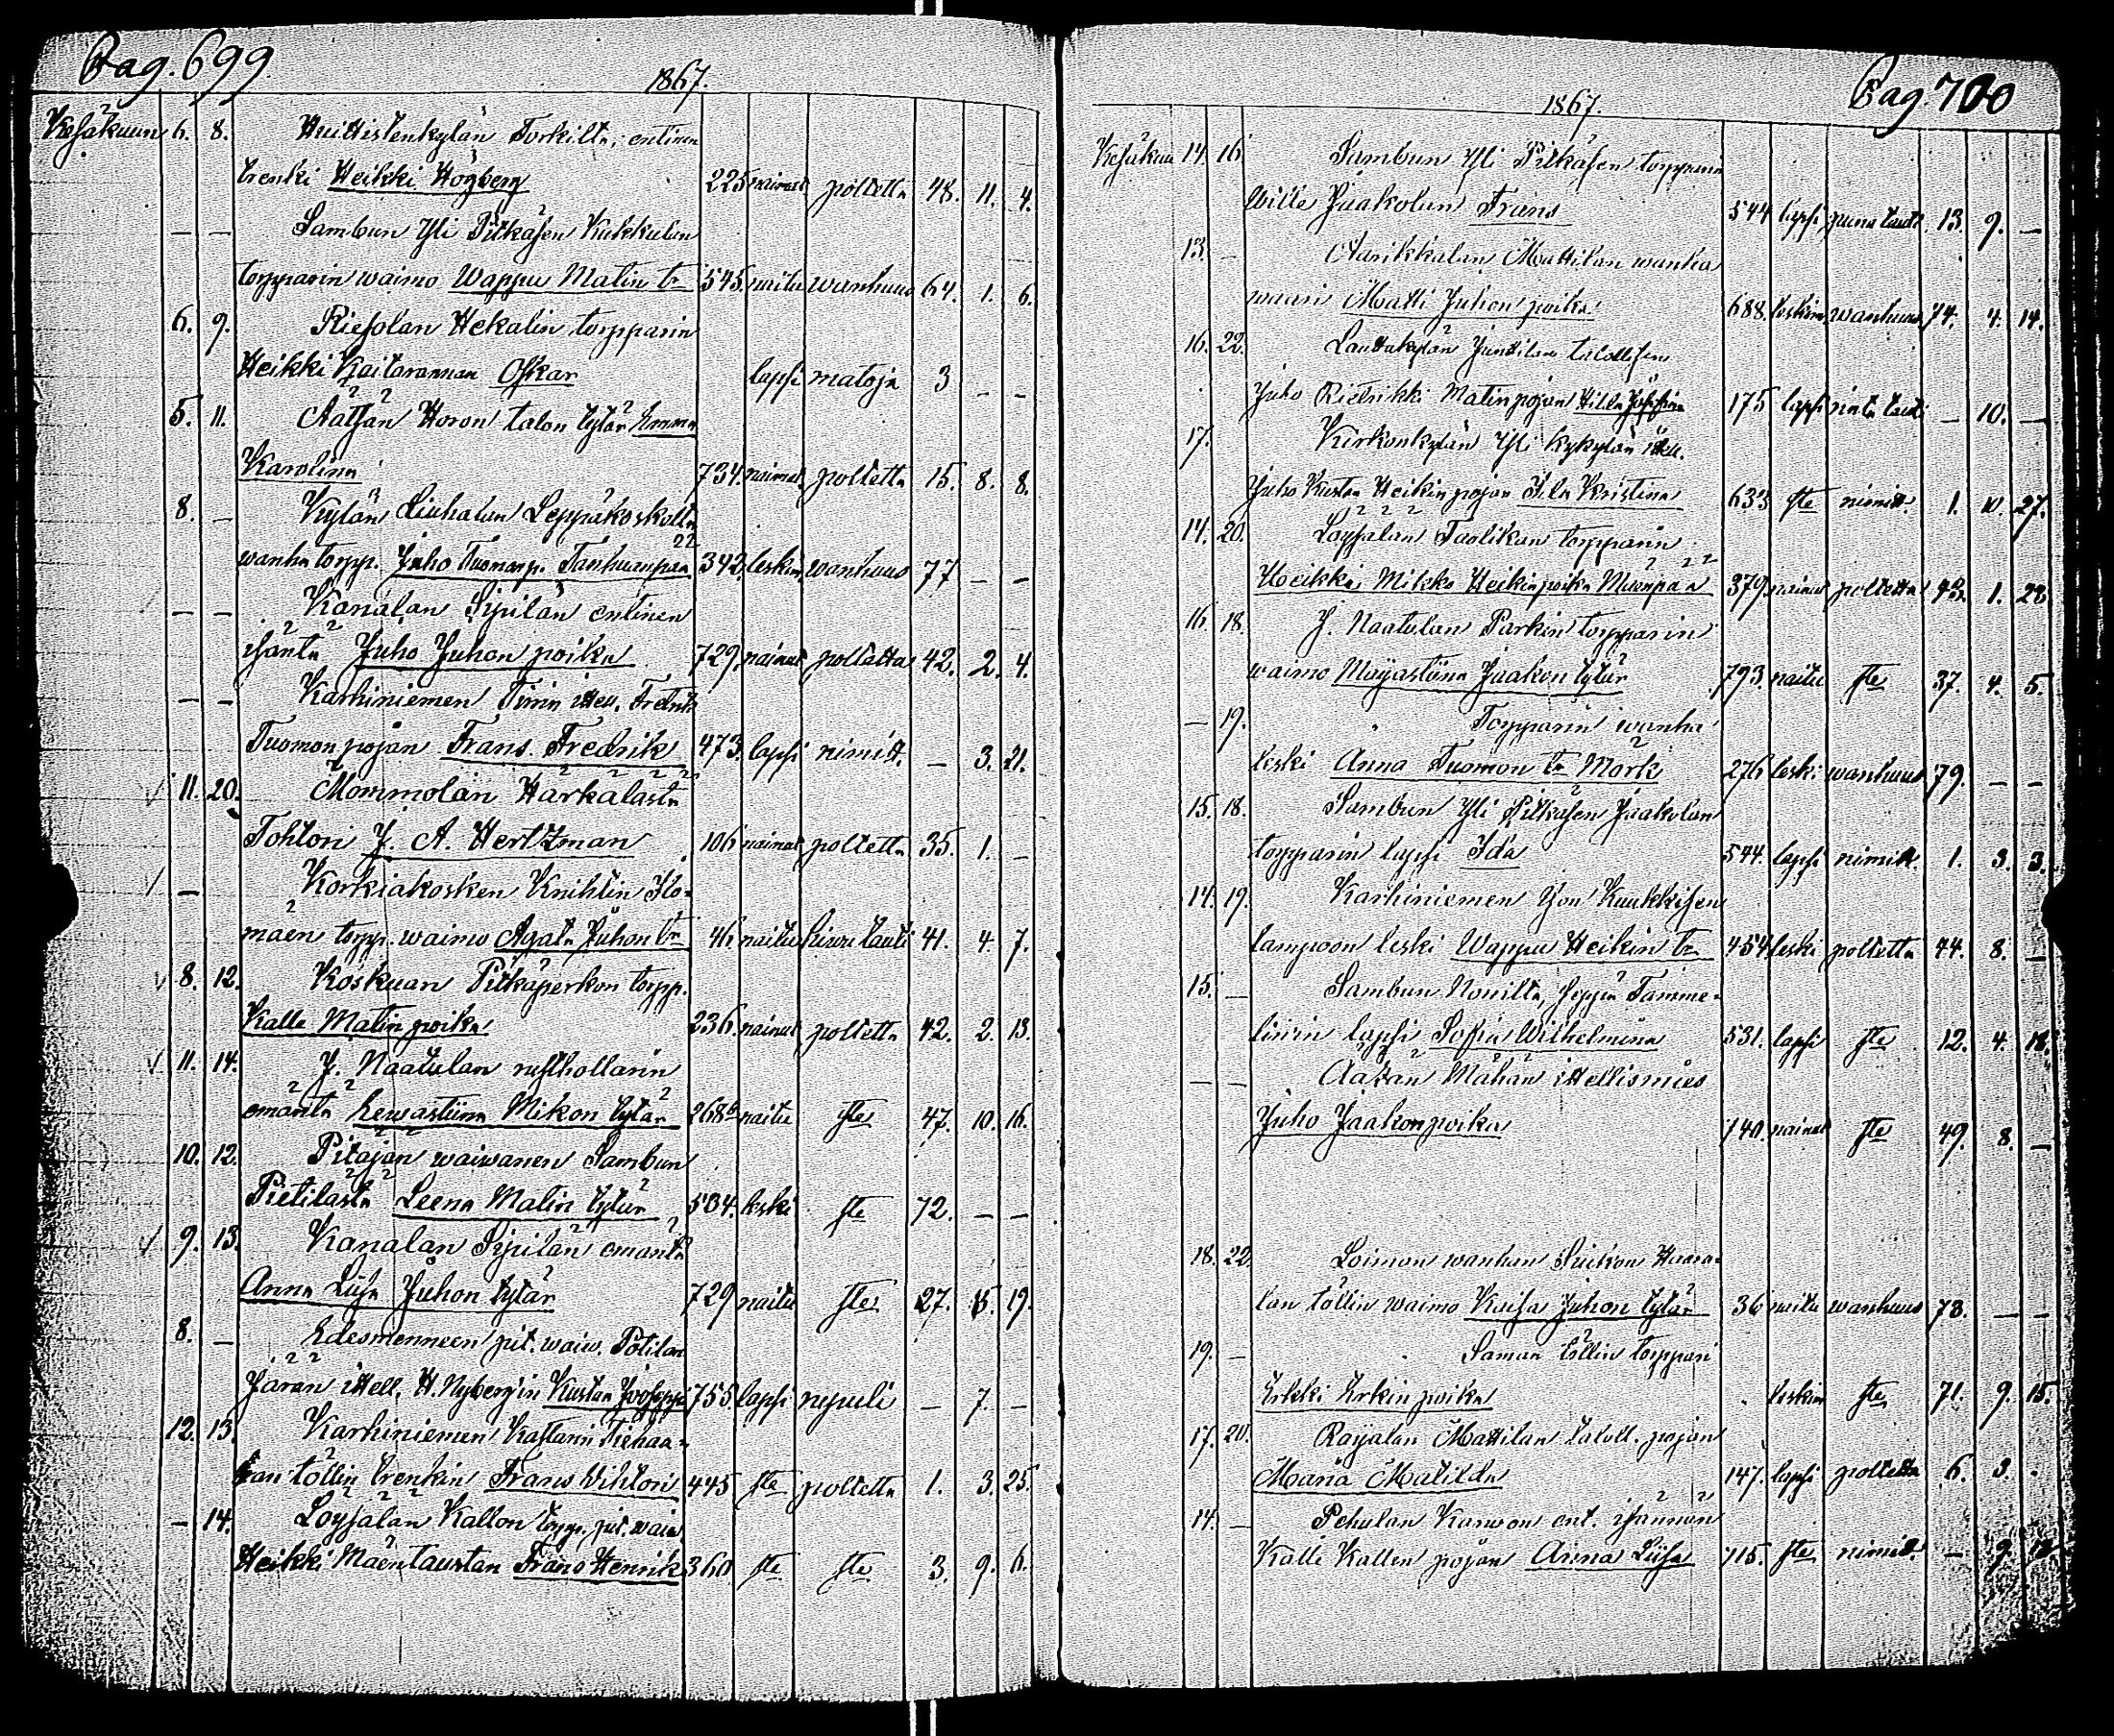 Pag. 699
1867.
Kesäkuun 6. 8. Huittistenkylän Torkilta, entinen
trenki Heikki Högberg 225 nainut poltetta 48. 11. 4.
— — Sambun Yli Pitkäsen Kukkulan
torpparin waimo Wappu Matin tr 545. naitu wanhuus 64. 1. 6.
6. 9. Riesolan Hekalin torpparin
Heikki Kaitarannan Oskar lapsi matoja 3 — —
5. 11. Aatsän Horon talon tytär Emma
Karolina 734. naimat. poltetta 15. 8. 8.
8. — Kylän Liuhalan Leppäkoskolta
wanha torpp. Juho Tuomanp. Tanhuanpää 342. leskim wanhuus 77 — —
— — Kanalan Sipilän entinen
isäntä Juho Juhon poika 729. nainut poltetta 42. 2. 4.
— — Karhiniemen Tirrin itsell. Fredrik
Tuomon pojan Frans Fredrik 473. lapsi nimitt. — 3. 21.
11. 20. Mommolan Härkälästä
Tohtori J. A. Hertzman 106 nainut poltetta 35. 1. —
— Korkiakosken Knihtin Ilo-
mäen torpp. waimo Agata Juhon tr 46 naitu hiwu tauti 41. 4. 7.
8. 12. Koskuan Pitkäperkon torpp.
Kalle Matin poika 236. nainut poltetta 42. 2. 13.
11. 14. Y. Naatulan rusthollarin
emäntä Eewastiina Mikon tytär 268b naitu ste 47. 10. 16.
10. 12. Pitäjän waiwanen Sambun
Pietilästä Leena Matin tytär 534. leski ste 72. — —
9. 13. Kanalan Sipilän emäntä
Anna Liisa Juhon tytär 729 naitu ste 27. 5. 19.
8. — Edesmenneen pit. waiw. Pötilän
Järän itsell. H. Nybergin Kustaa Jooseppi 755. lapsi rupuli — 7. —
12. 13. Karhiniemen Kaftarin Tiehaa-
ran töllin trenkin Frans Vihtori 445 ste poltetta 1. 3. 25.
— 14. Loysälän Kallon torpp. pit. waiw
Heikki Mäentaustan Frans Henrik 360 ste ste 3. 9. 6.
Pag. 700
1867.
Kesäkuu 14. 16. Sambun Yli Pitkäsen torpparin
Wille Jaakolan Frans 544 lapsi puna taut. 13. 9. —
13. — Aarikkalan Mattilan wanha
waari Matti Juhon poika 688. leskim wanhuus 74. 4. 14.
16. 22. Lauttakylän Junttilan talollisen
Juho Rietrikki Matin pojan Hilda Josefina 175 lapsi rinta taut — 10. —
17. Kirkonkylän Yli Kykylän itsell.
Juho Kustaa Heikin pojan Iida Kristina 633 ste nimitt. 1. 10. 27.
14. 20. Löysälän Taolikan torpparin
Heikki Mikko Heikinpoika Muonpää 379. nainut poltetta 43. 1. 28
16 18. Y. Naatulan Parkin torpparin
waimo Majastiina Jaakon tytär 793. naitu ste 37. 4. 5.
— 19. " Torpparin wanha
leski Anna Tuomon tr Mörk 276 leski wanhuus 79. — —
15. 18. Sambun Yli Pitkäsen Jaakolan
torpparin lapsi Ida 544. lapsi nimitt. 1. 3. 3.
14. 19. Karhiniemen Yon Kuukkisen
lampoon leski Wappu Heikin tr 454 leski poltetta 44. 8. —
15. — Sambun Nonilta, Seppä Tamme-
liinin lapsi Sofia Wilhelmina 531. lapsi ste 12. 4. 18.
— — Aatsän Mähän itsellismies
Juho Jaakonpoika 740. nainut ste 49. 8. —
18. 22. Loiman wanhan Suikon Haara-
lan töllin waimo Kaisa Juhon tytär 36 naitu wanhuus 73. — —
19. — Saman töllin torppari
Erkki Erkin poika " leskim ste 71. 9. 15.
17. 20. Raijalan Mattilan taloll. pojan
Maria Matilda 147. lapsi poltetta 6. 3. -
14. — Pehulan Karwon ent. isännän
Kalle Kallen pojan Anna Liisa 715. ste nimitt. — 9.